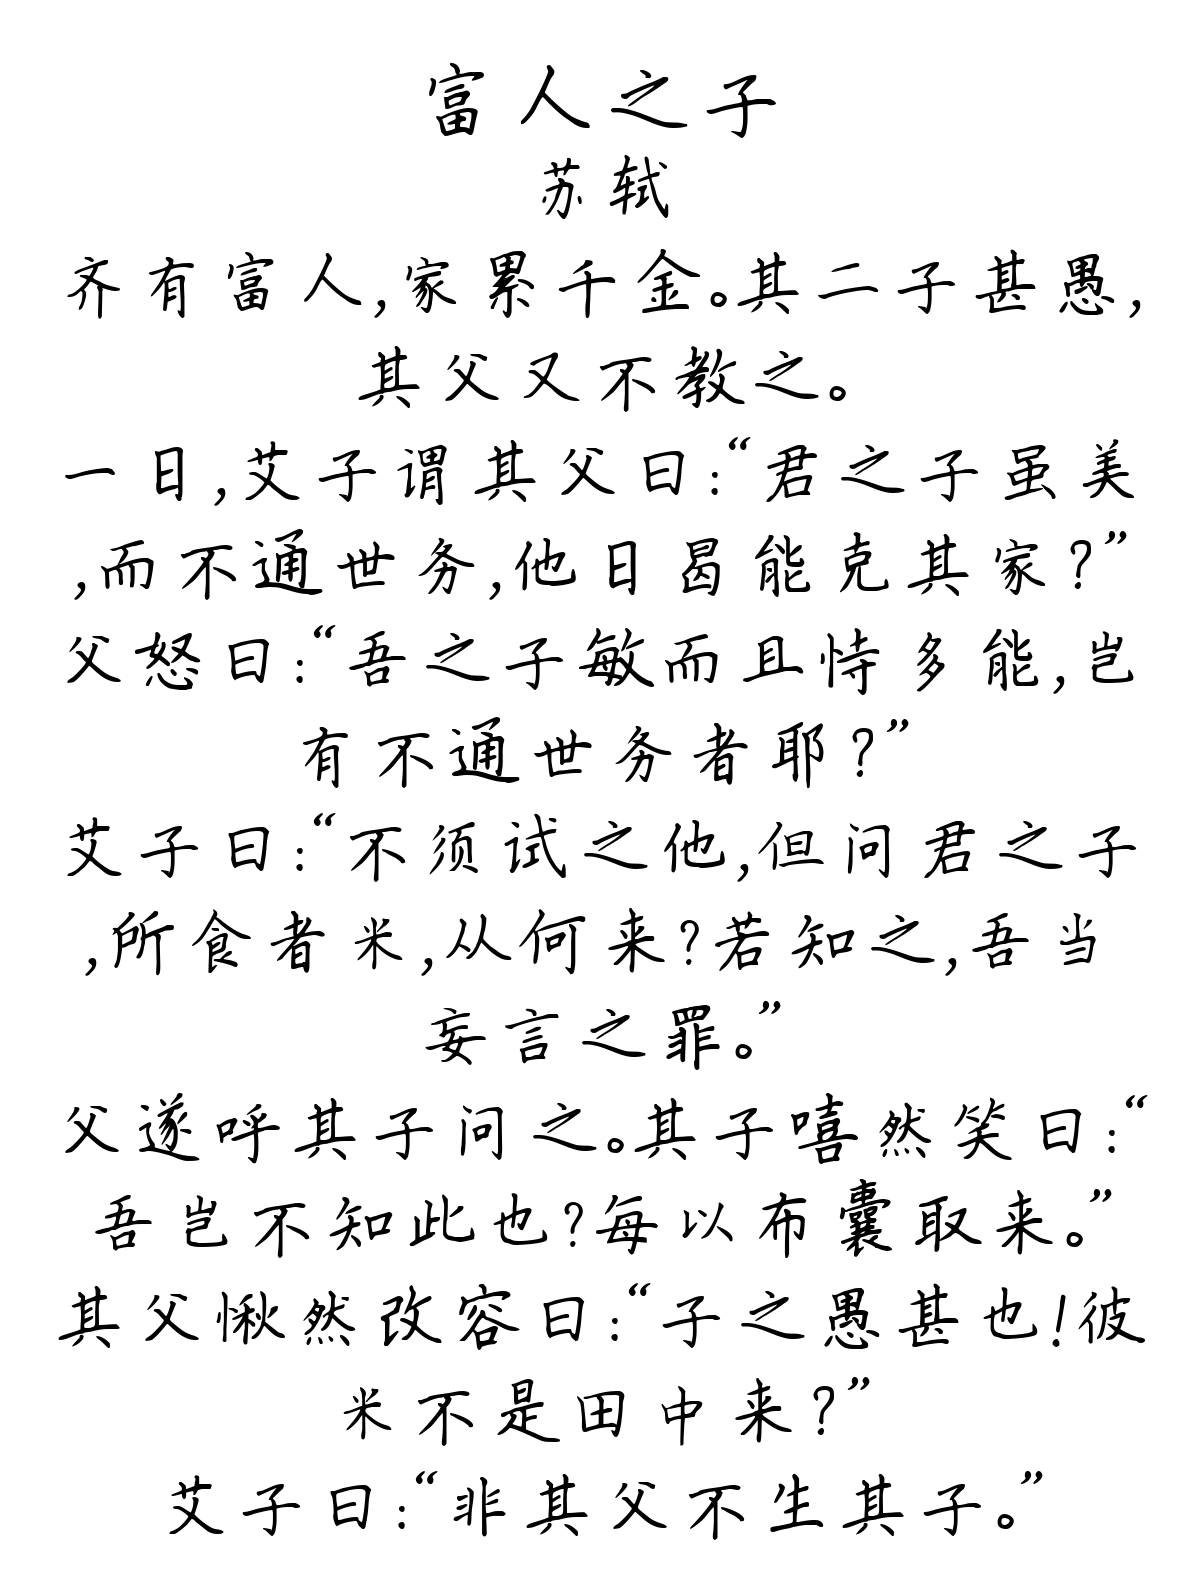 富人之子
苏轼
齐有富人,家累千金。其二子甚愚,
其父又不教之。
一日,艾子谓其父曰:“君之子虽美
,而不通世务,他日曷能克其家?”
父怒曰:“吾之子敏而且恃多能,岂
有不通世务者耶?”
艾子曰:“不须试之他,但问君之子
,所食者米,从何来?若知之,吾当
妄言之罪。”
父遂呼其子问之。其子嘻然笑曰:“
吾岂不知此也?每以布囊取来。”
其父愀然改容曰:“子之愚甚也!彼
米不是田中来?”
艾子曰:“非其父不生其子。”